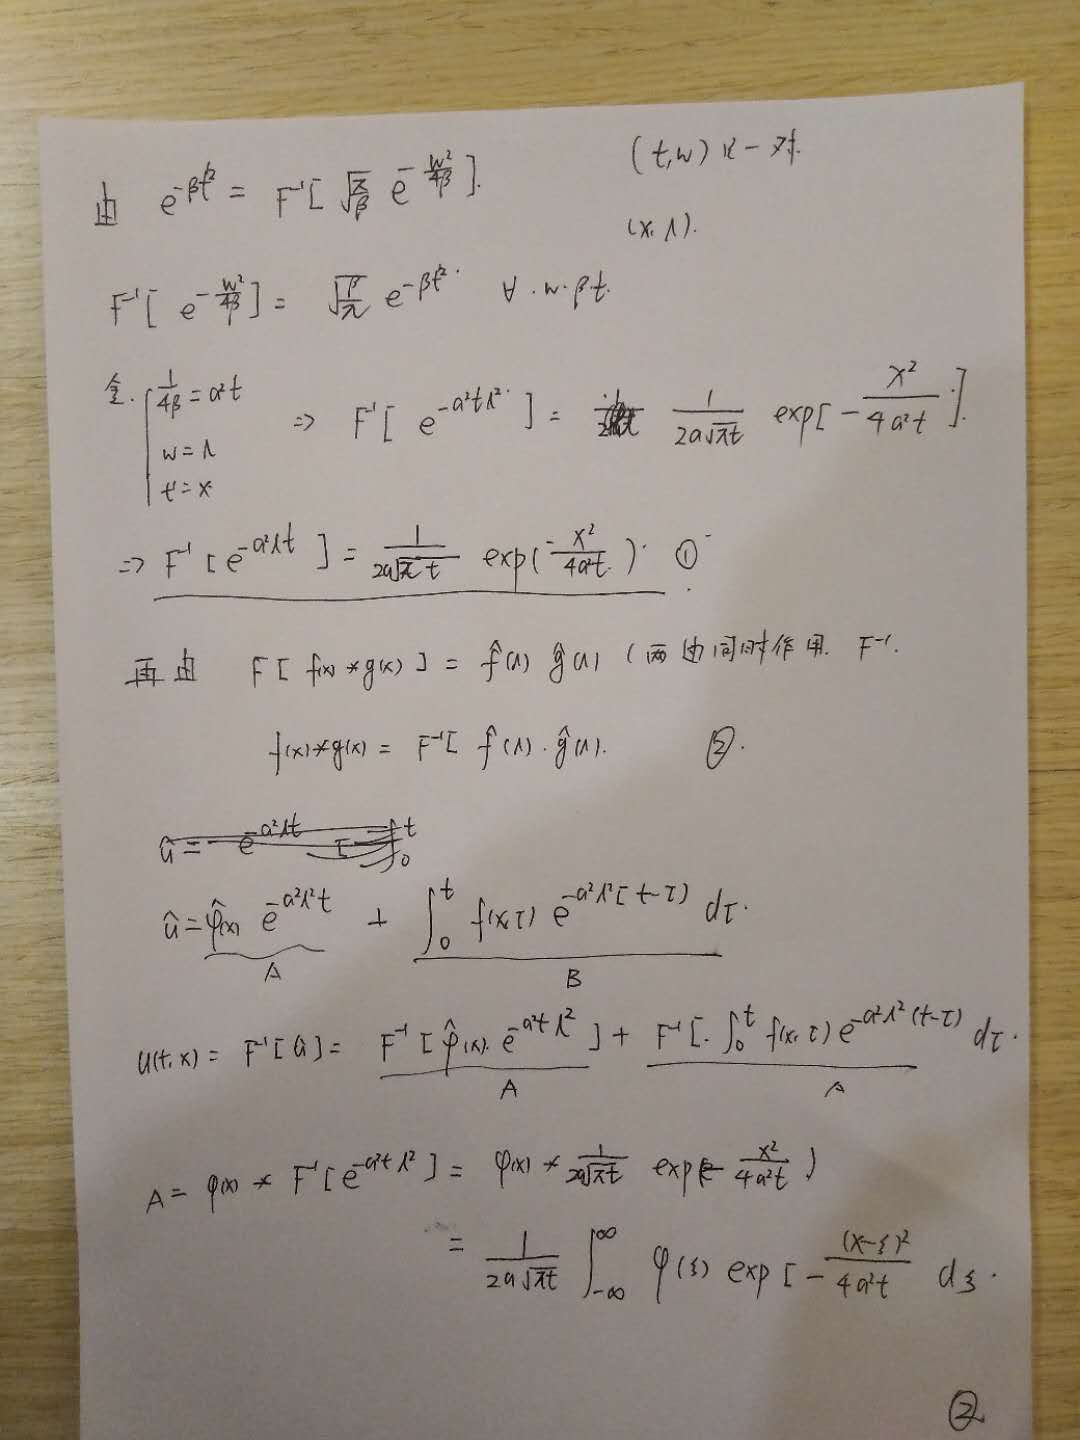 由 e^{-βt²} = F⁻¹[ √(π/β) e^{-w²/4β} ]. (t,w) 是一对.
(x, λ).
F⁻¹[ e^{-w²/4β} ] = √(β/π) e^{-βt²}. ∀ . w. β t.
令. { 1/4β = a²t
w = λ
t = x
⇒ F⁻¹[ e^{-a²tλ²} ] = 1/(2a√πt) exp[ - x²/4a²t ].
⇒ F⁻¹[ e^{-a²λt} ] = 1/(2a√πt) exp( - x²/4a²t. ). ①
再由 F[ f(x) * g(x) ] = f̂(λ) ĝ(λ) (两边同时作用. F⁻¹.
f(x) * g(x) = F⁻¹[ f̂(λ) . ĝ(λ). ②.
û = e^{-a²λt} [ ∫₀ᵗ
û = φ̂(x) e^{-a²λ²t} + ∫₀ᵗ f(x,τ) e^{-a²λ²[t-τ)} dτ.
A B
u(t,x) = F⁻¹[û] = F⁻¹[ φ̂(x). e^{-a²tλ²} ] + F⁻¹[. ∫₀ᵗ f(x,τ) e^{-a²λ²(t-τ)} dτ.
A A
A = φ(x) * F⁻¹[ e^{-a²tλ²} ] = φ(x) * 1/(2a√πt) exp( - x²/4a²t )
= 1/(2a√πt) ∫_{-∞}^{∞} φ(ξ) exp[ - (x-ξ)²/4a²t dξ.
②